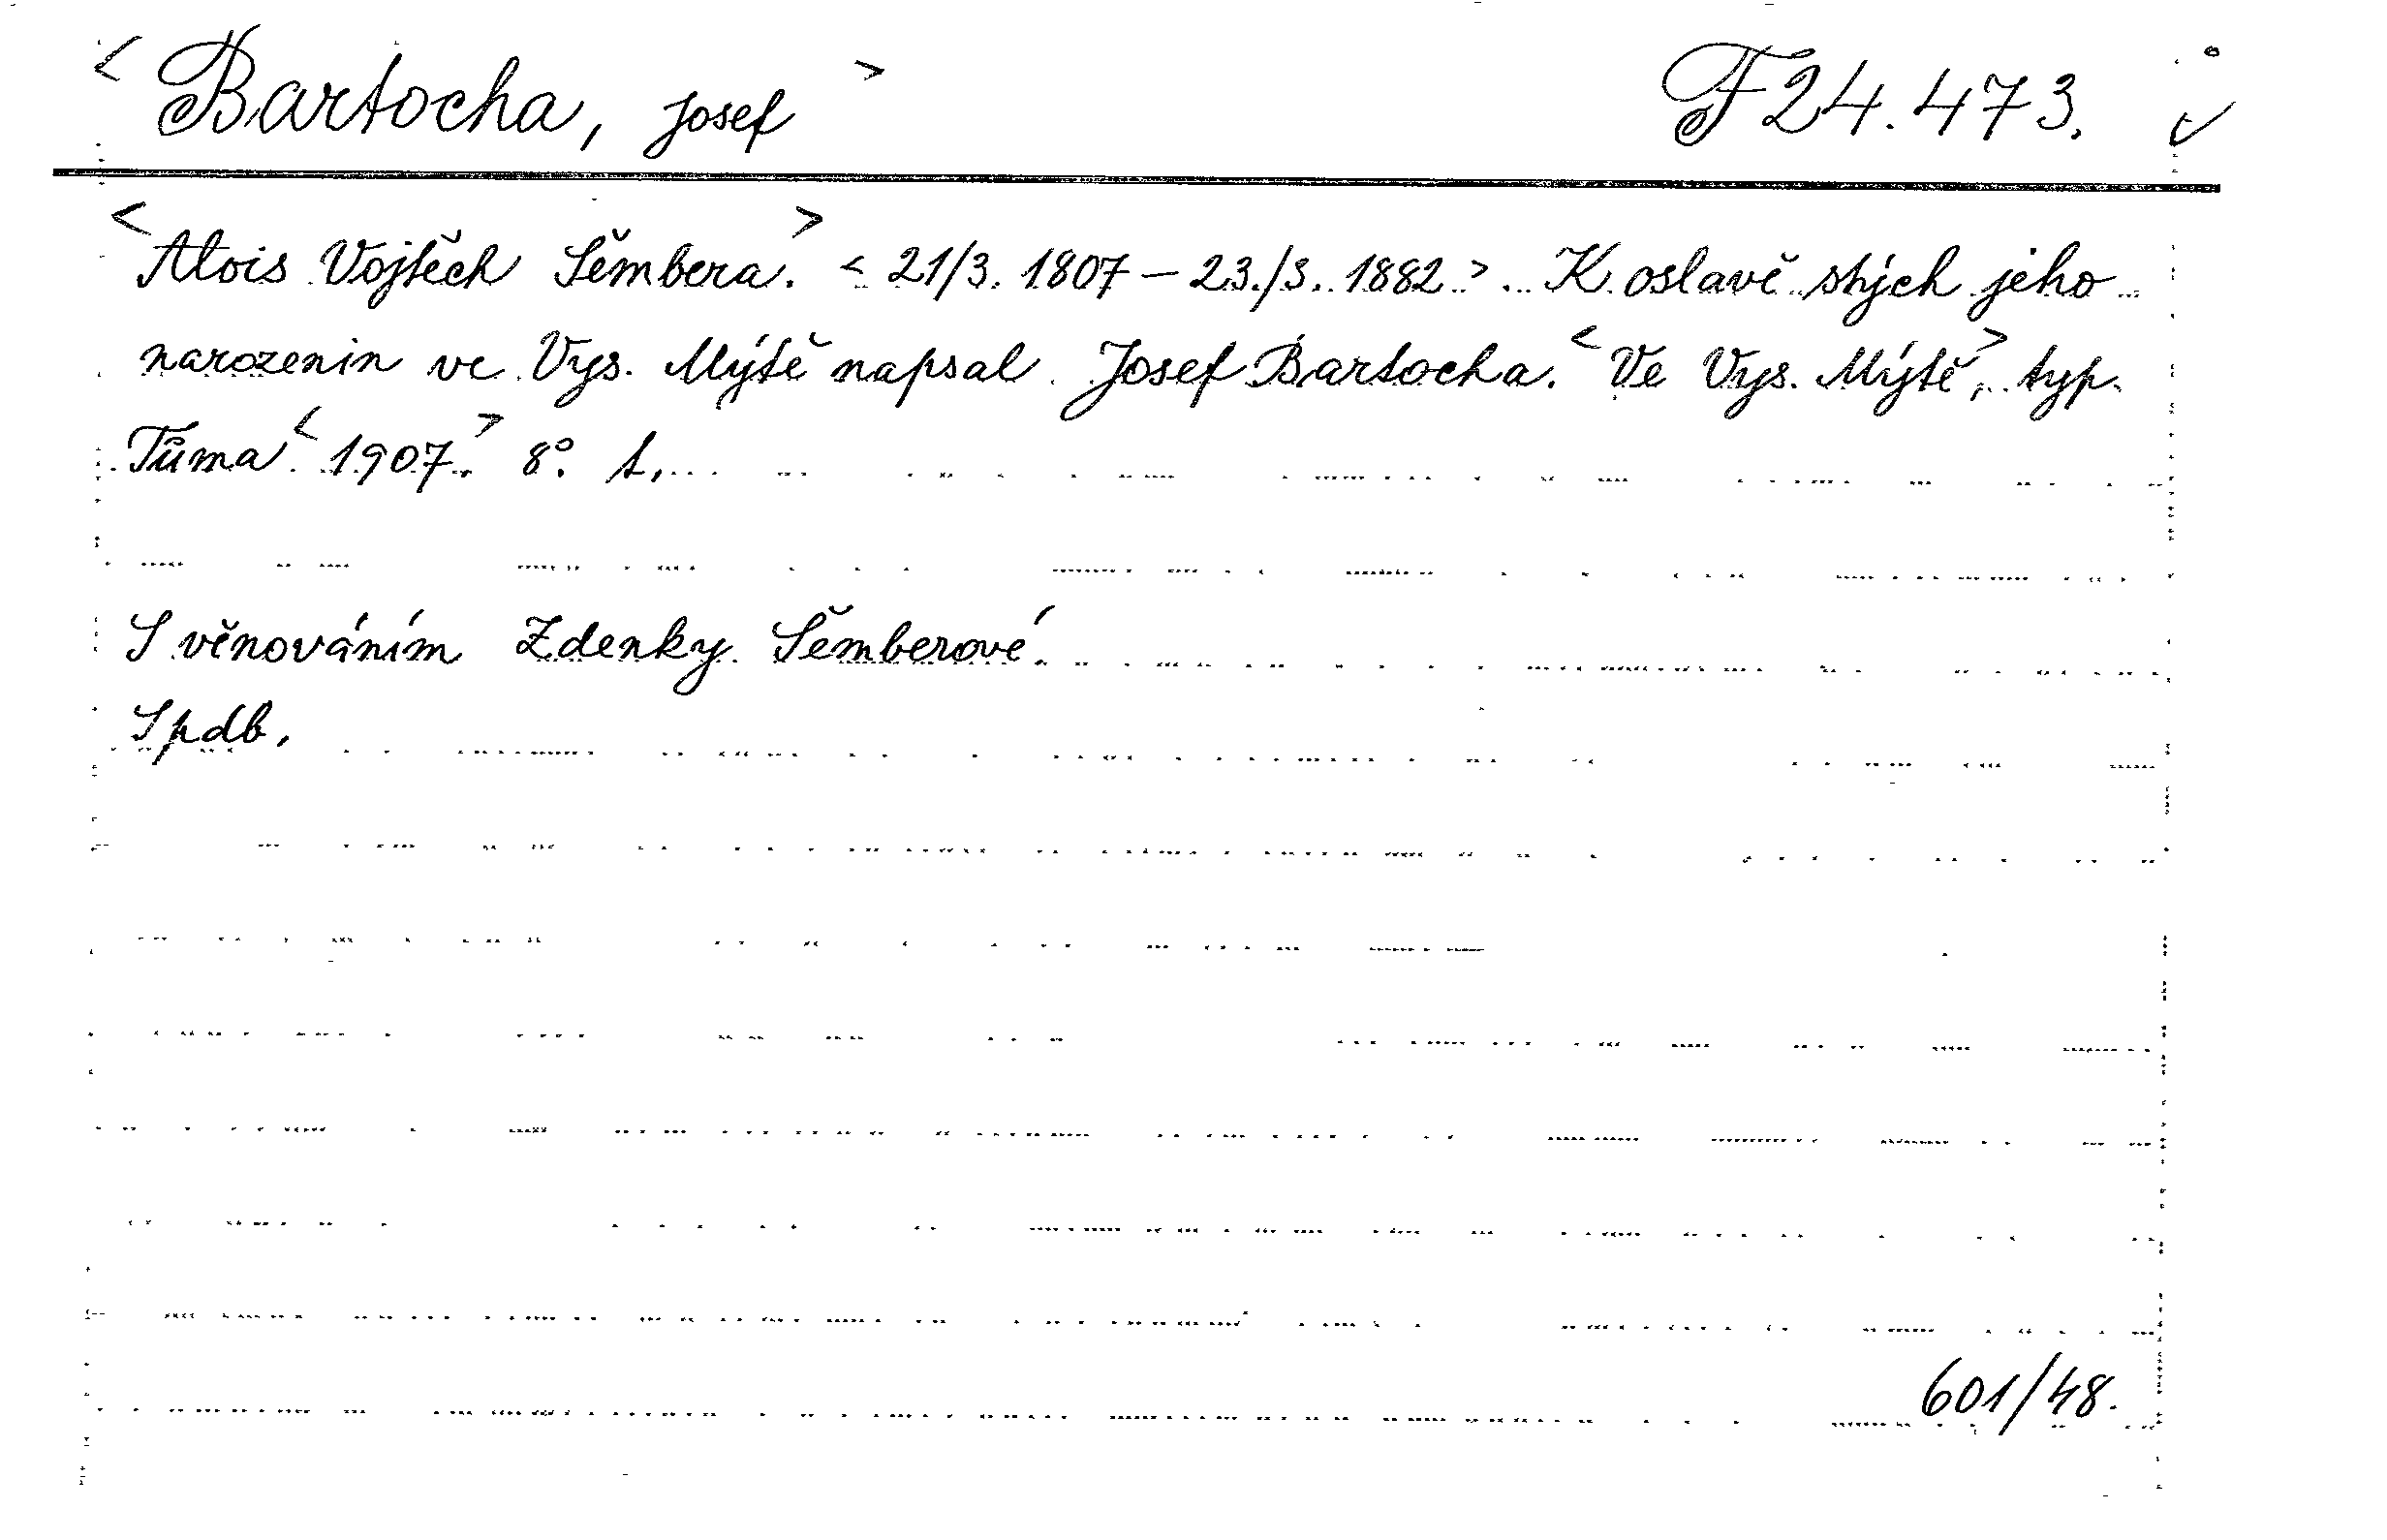 < Bartocha, Josef > F 24.473.
<Alois Vojtěch Šembera.> < 21/3. 1807 – 23./3. 1882 > K oslavě stých jeho
narozenin ve Vys. Mýtě napsal Josef Bartocha. <Ve Vys. Mýtě>, typ.
Tůma <1907.> 8°. 1.
S věnováním Zdenky Šemberové.
Spdb.
601/48.